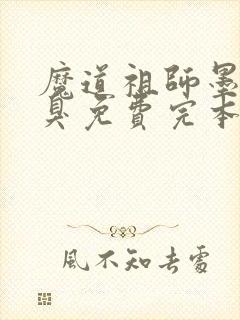 魔道祖師墨
臭免費完本
風不知去處